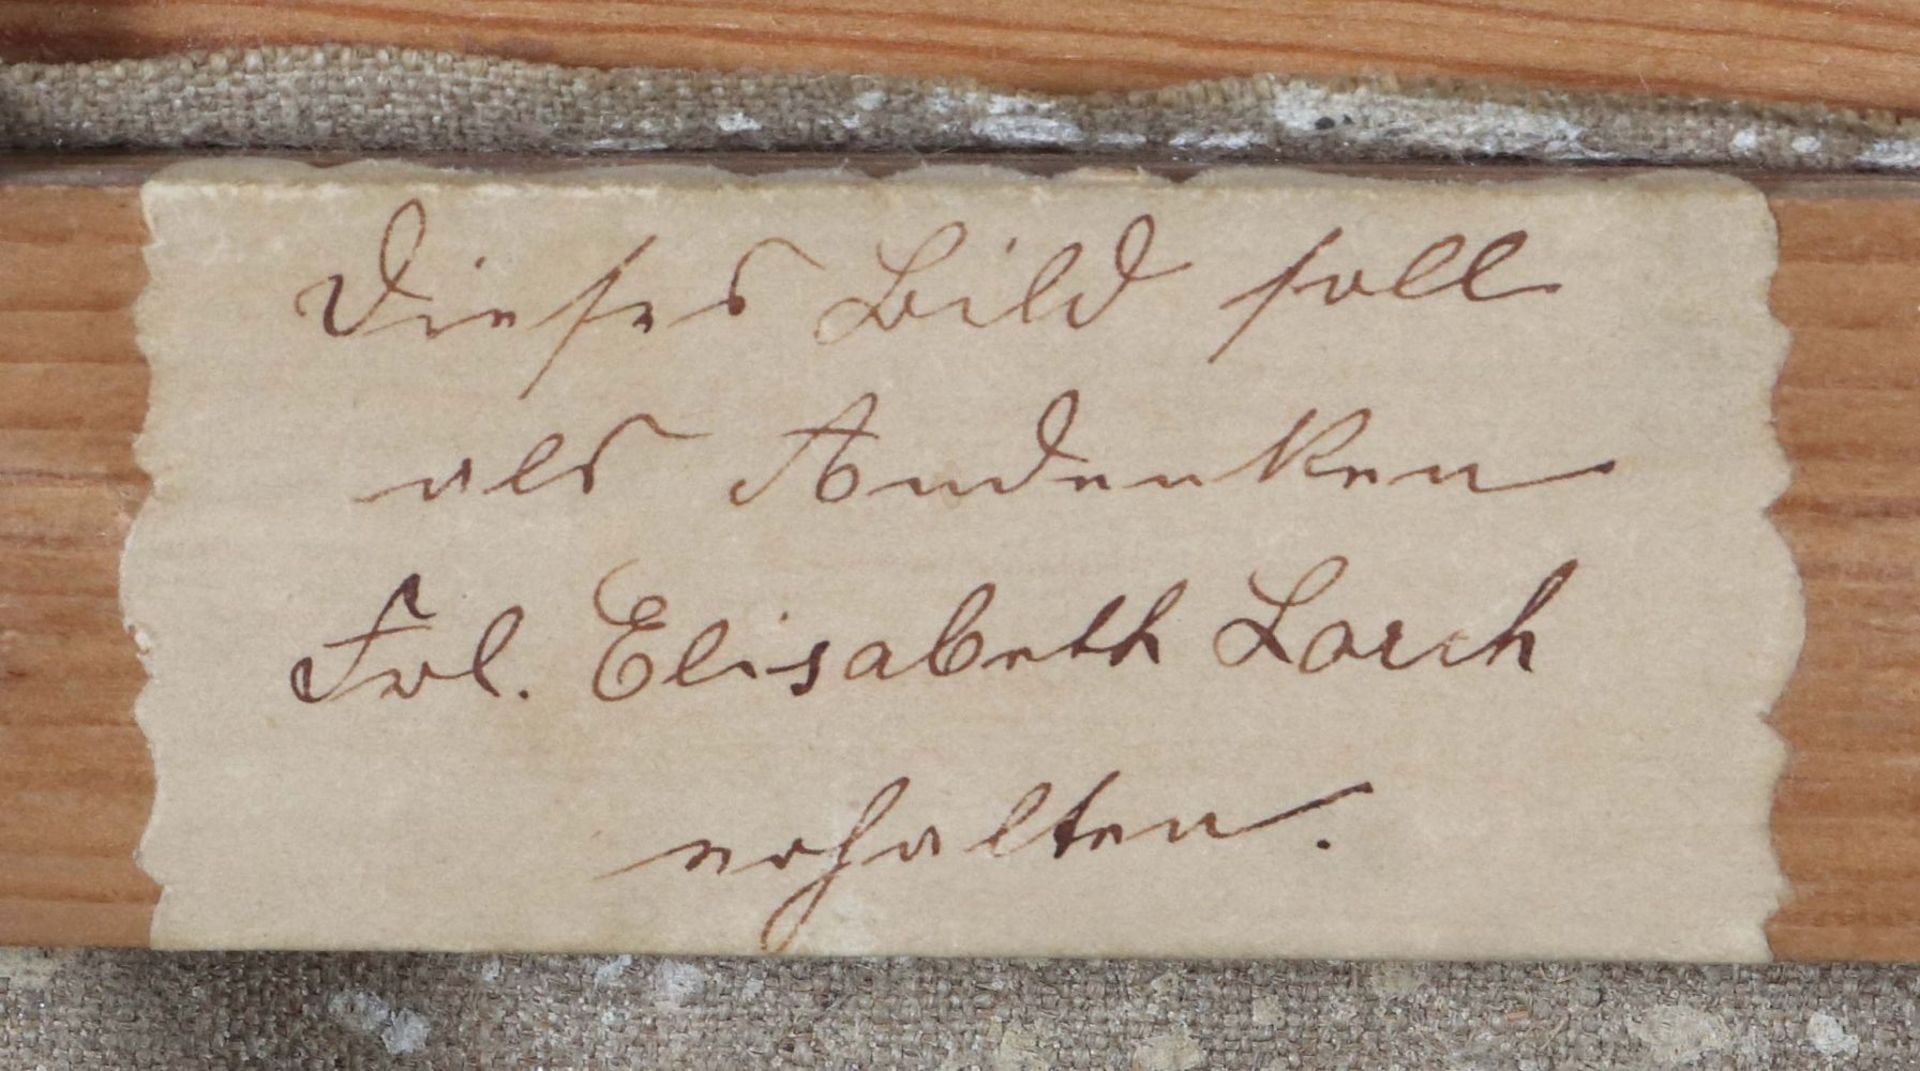 Dieses Bild soll
als Andenken
Frl. Elisabeth Lorch
erhalten.